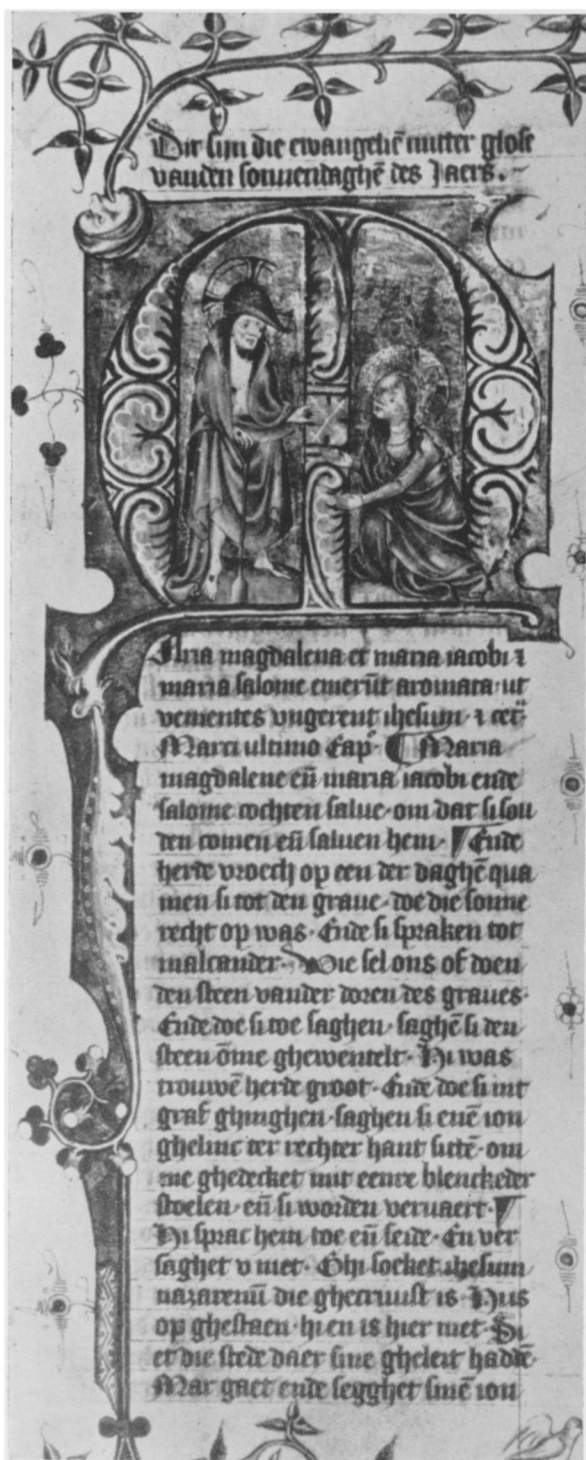 Dit sijn die ewangeliē mitter glose
vanden sonnendaghē des Jaers.
Aria magdalena et maria iacobi ⁊
maria salome emerūt aromata · ut
venientes vngerent ihesum · ⁊ cet̄
Marci ultimo Capᵒ · Maria
magdalene eñ maria iacobi ende
salome cochten salue · om dat si sou
den comen eñ saluen hem · Ende
herde vroech op een der daghē qua
men si tot den graue · doe die sonne
recht op was · Ende si spraken tot
malcander · Wie sel ons of doen
den steen vander doren des graues ·
Ende doe si toe saghen · saghē si den
steen ōme ghewentelt · Hi was
trouwē herde groot · Ende doe si int
graf ghinghen · saghen si enē ion
gheline ter rechter hant sittē · om
me ghedecket mit eenre blenckeder
stoelen · eñ si worden veruaert ·
Hi sprac hem toe eñ seide · En ver
saghet v niet · Ghi soeket ihesum
nazarenū die ghecruust is · Hi is
op ghestaen · hi en is hier niet · Si
et die stede daer sine gheleit haddē ·
Mar gaet ende segghet sinē ion